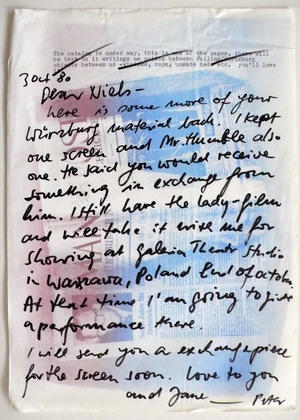 The catalog is under way, this is one of the pages, there will
be text on it writings on points between Falling/Würzburg
objects between us - windows, cups, unmade beds etc. you'll love
3 Oct 80
Dear Niels -
here is some more of your
Würzburg material back. I kept
one screen and Mr. Humble also
one. He said you would receive
something in exchange from
him. I still have the lady-film
and will take it with me for
showing at Galeria Theatr Studio
in Warszawa, Poland End of october.
At that time I'm going to give
a performance there.
I will send you a exchange piece
for the screen soon. Love to you
and Jane — Peter